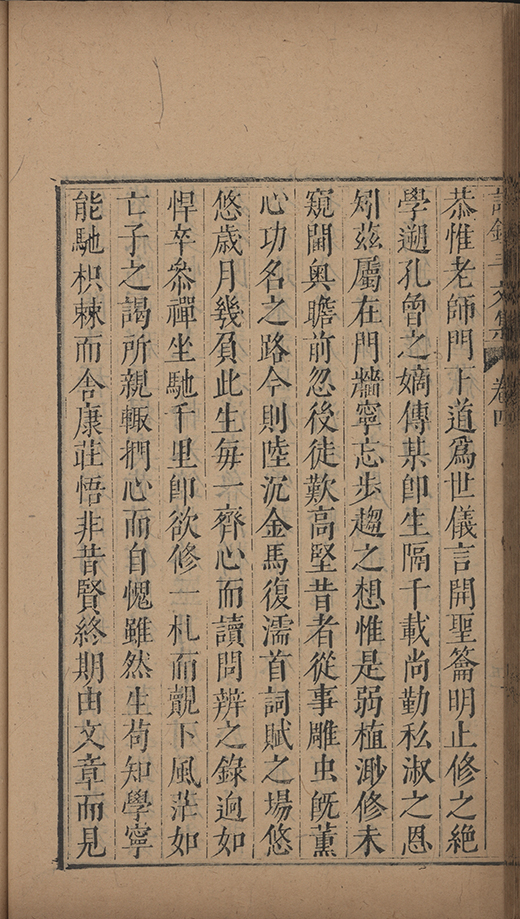 卷四
恭惟老師門下道為世儀言開聖籥明止修之絶
學遡孔曾之嫡傳某卽生隔千載尚勤私淑之恩
矧茲屬在門牆寧忘步趨之想惟是弱植渺修未
窺閫奧瞻前忽後徒歎高堅昔者從事雕虫旣薰
心功名之路今則陸沉金馬復濡首詞賦之場悠
悠歲月幾負此生每一齊心而讀問辨之錄逈如
悍卒叅禪坐馳千里卽欲修一札而覿下風茫如
亡子之謁所親輙捫心而自愧雖然生苟知學寧
能馳枳棘而舎康莊悟非昔賢終期由文章而見